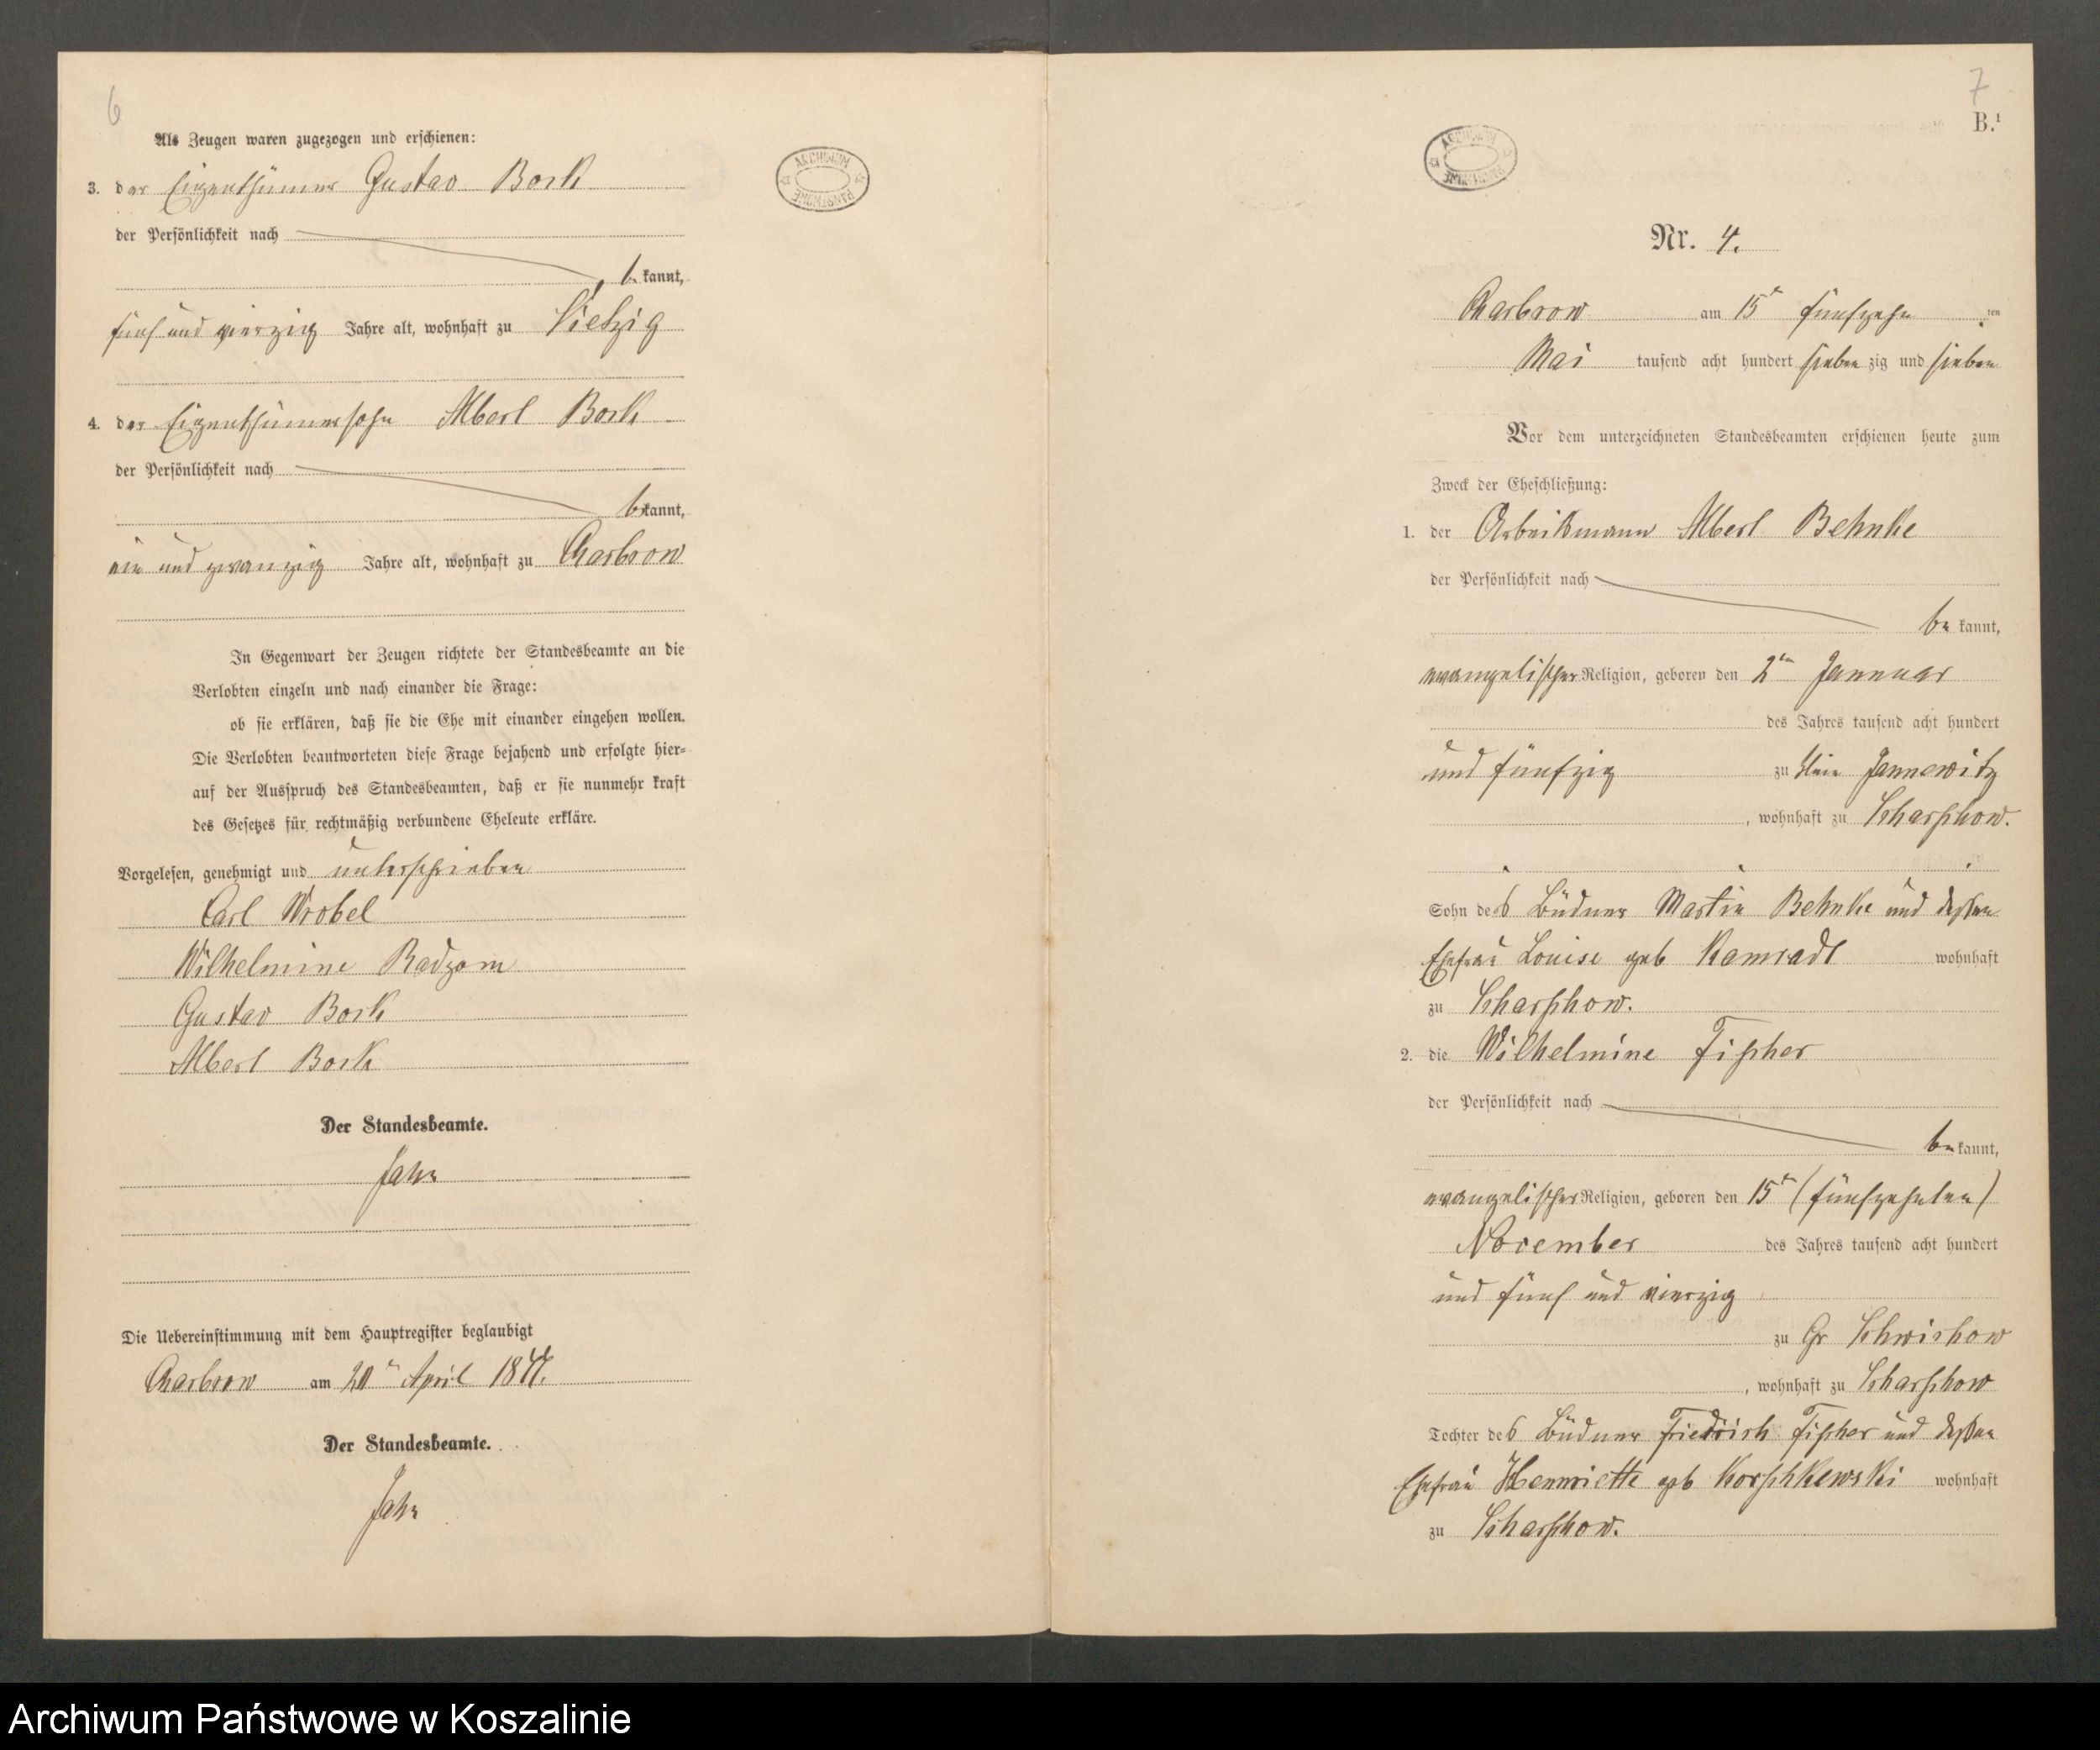 6
Als Zeugen waren zugezogen und erschienen:
3. der Eigenthümer Gustav Bork
der Persönlichkeit nach
bekannt,
fünf und vierzig Jahre alt, wohnhaft zu Vietzig
4. der Eigenthümersohn Albert Bork
der Persönlichkeit nach
bekannt,
ein und zwanzig Jahre alt, wohnhaft zu Charbrow
In Gegenwart der Zeugen richtete der Standesbeamte an die
Verlobten einzeln und nach einander die Frage:
ob sie erklären, daß sie die Ehe mit einander eingehen wollen.
Die Verlobten beantworteten diese Frage bejahend und erfolgte hier-
auf der Ausspruch des Standesbeamten, daß er sie nunmehr kraft
des Gesetzes für rechtmäßig verbundene Eheleute erkläre.
Vorgelesen, genehmigt und unterschrieben
Carl Wrobel
Wilhelmine Radzom
Gustav Bork
Albert Bork
Der Standesbeamte.
Jahn
Die Uebereinstimmung mit dem Hauptregister beglaubigt
Charbrow am 20ten April 1877.
Der Standesbeamte.
Jahn
ARCHIWUM PAŃSTWOWE
7
B.¹
ARCHIWUM PAŃSTWOWE
Nr. 4.
Charbrow am 15ten fünfzehn ten
Mai tausend acht hundert siebenzig und sieben
Vor dem unterzeichneten Standesbeamten erschienen heute zum
Zweck der Eheschließung:
1. der Arbeitsmann Albert Behnke
der Persönlichkeit nach
bekannt,
evangelischer Religion, geboren den 2ten Januar
des Jahres tausend acht hundert
und fünfzig zu Klein Jannewitz
, wohnhaft zu Scharschow.
Sohn des Büdner Martin Behnke und dessen
Ehefrau Louise geb Kamradt wohnhaft
zu Scharschow.
2. die Wilhelmine Fischer
der Persönlichkeit nach
bekannt,
evangelischer Religion, geboren den 15ten (fünfzehnten)
November des Jahres tausend acht hundert
und fünf und vierzig
zu Gr Schwichow
, wohnhaft zu Scharschow
Tochter des Büdner Friedrich Fischer und dessen
Ehefrau Henriette geb Korschkewski wohnhaft
zu Scharschow.
Archiwum Państwowe w Koszalinie